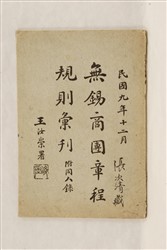 民國九年十二月
無錫商團章程
規則彙刊附同人錄
王汝崇署